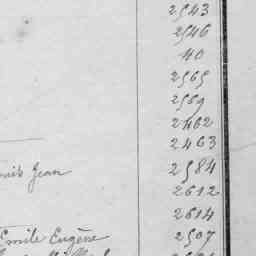 2543
2546
40
2565
2569
2462
2463
Jean 2584
2612
2614
Emile Eugène 2507